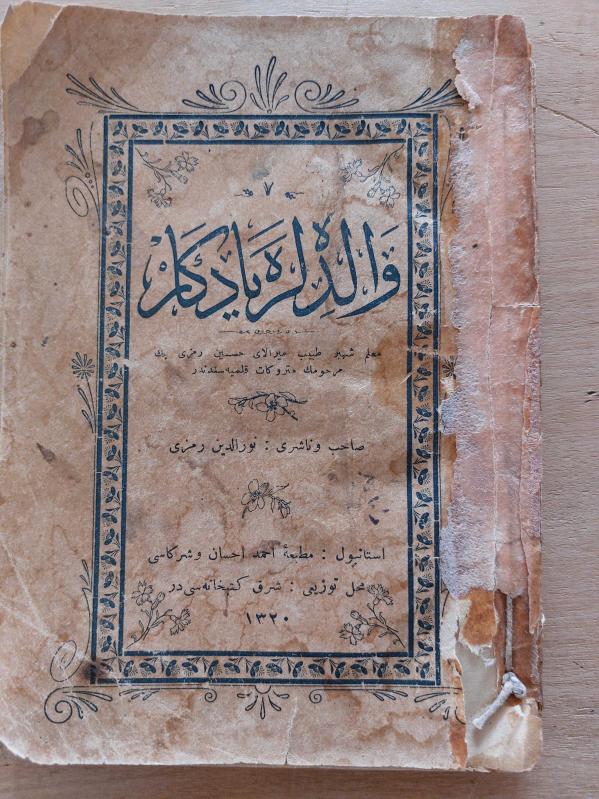 ٧
والدهلره یادكار
معلم شهیر طبیب میرالای حسین رمزی بك
مرحومك متروكات قلمیه‌سندندر
صاحب وناشری : نورالدین رمزی
استانبول : مطبعهٔ احمد احسان وشركاسی
محل توزیعی : شرق كتبخانه‌سی در
١٣٢٠